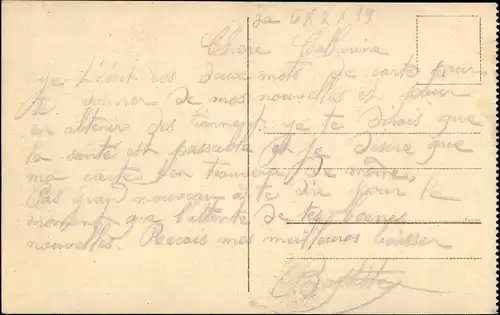 Le
Chere Catherine
je t'écrit ces deux mots de carte pour
te donner de mes nouvelles et pour
en obtenir des tiennent je te dirais que
la santé est passable et je desire que
ma carte t'en trouvera de même,
Pas grand nouveau a te dire pour le
moment que l'attente de tes bonnes
nouvelles. Recois mes meilleures baisser